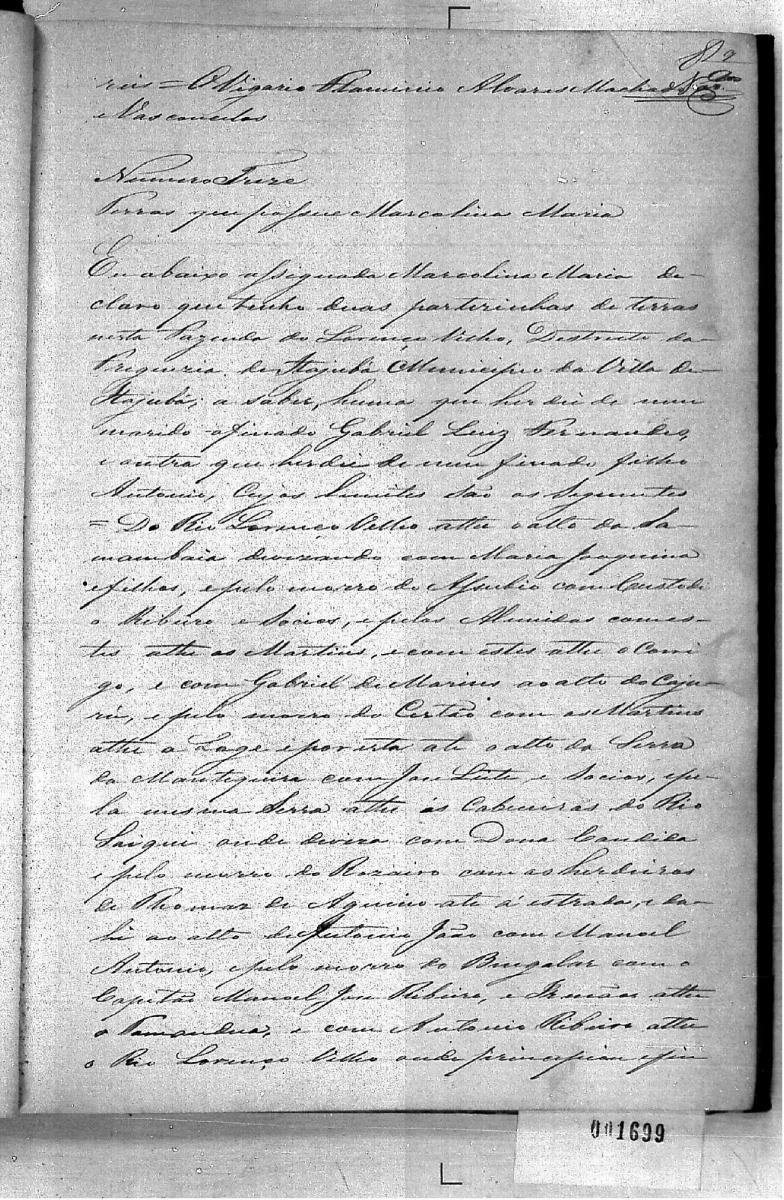 82
reis = O Vigario Flaminio Alvares Machado
e Vasconcelos
Numero Treze
Terras que possue Marcolina Maria
Eu abaixo assignada Marcolina Maria de-
claro que tenho duas partizinhas de terras
nesta Fazenda do Lorenço Velho, Destricto da
Freguezia de Itajubá Municipio da Villa de
Itajubá; a saber, huma que herdei de meu
marido o finado Gabriel Luiz Fernandes,
e outra que herdei de meu finado filho
Antonio, Cujos limites são os Seguintes
= Do Rio Lorenço Velho athe o alto da Sa-
mambaia devizando com Maria Joaquina
e filhos, e pelo morro do Assubio com Custodi
o Ribeiro e Socios, e pelos Almeidas com es-
tes athe os Martins, e com estes athe o Corri
go, e com Gabriel de Marins ao alto do Caju-
rú, e pelo morro do Certão com os Martins
athe a Lage e por esta até o alto da Serra
da Mantiqueira com Jose Leite, e Socios, e pe-
la mesma Serra athe ás Cabeceiras do Rio
Saiqui onde deviza com Dona Candida
e pelo morro do Rozario com os herdeiros
de Thomaz de Aquino até á estrada, e da-
hi ao alto de Antonio João com Manoel
Antonio, e pelo morro do com o
Capitão Manoel Jose Ribeiro, e Irmãos athe
o Tamandua, e com Antonio Ribeiro athe
o Rio Lorenço Velho onde principiou e fin
001699